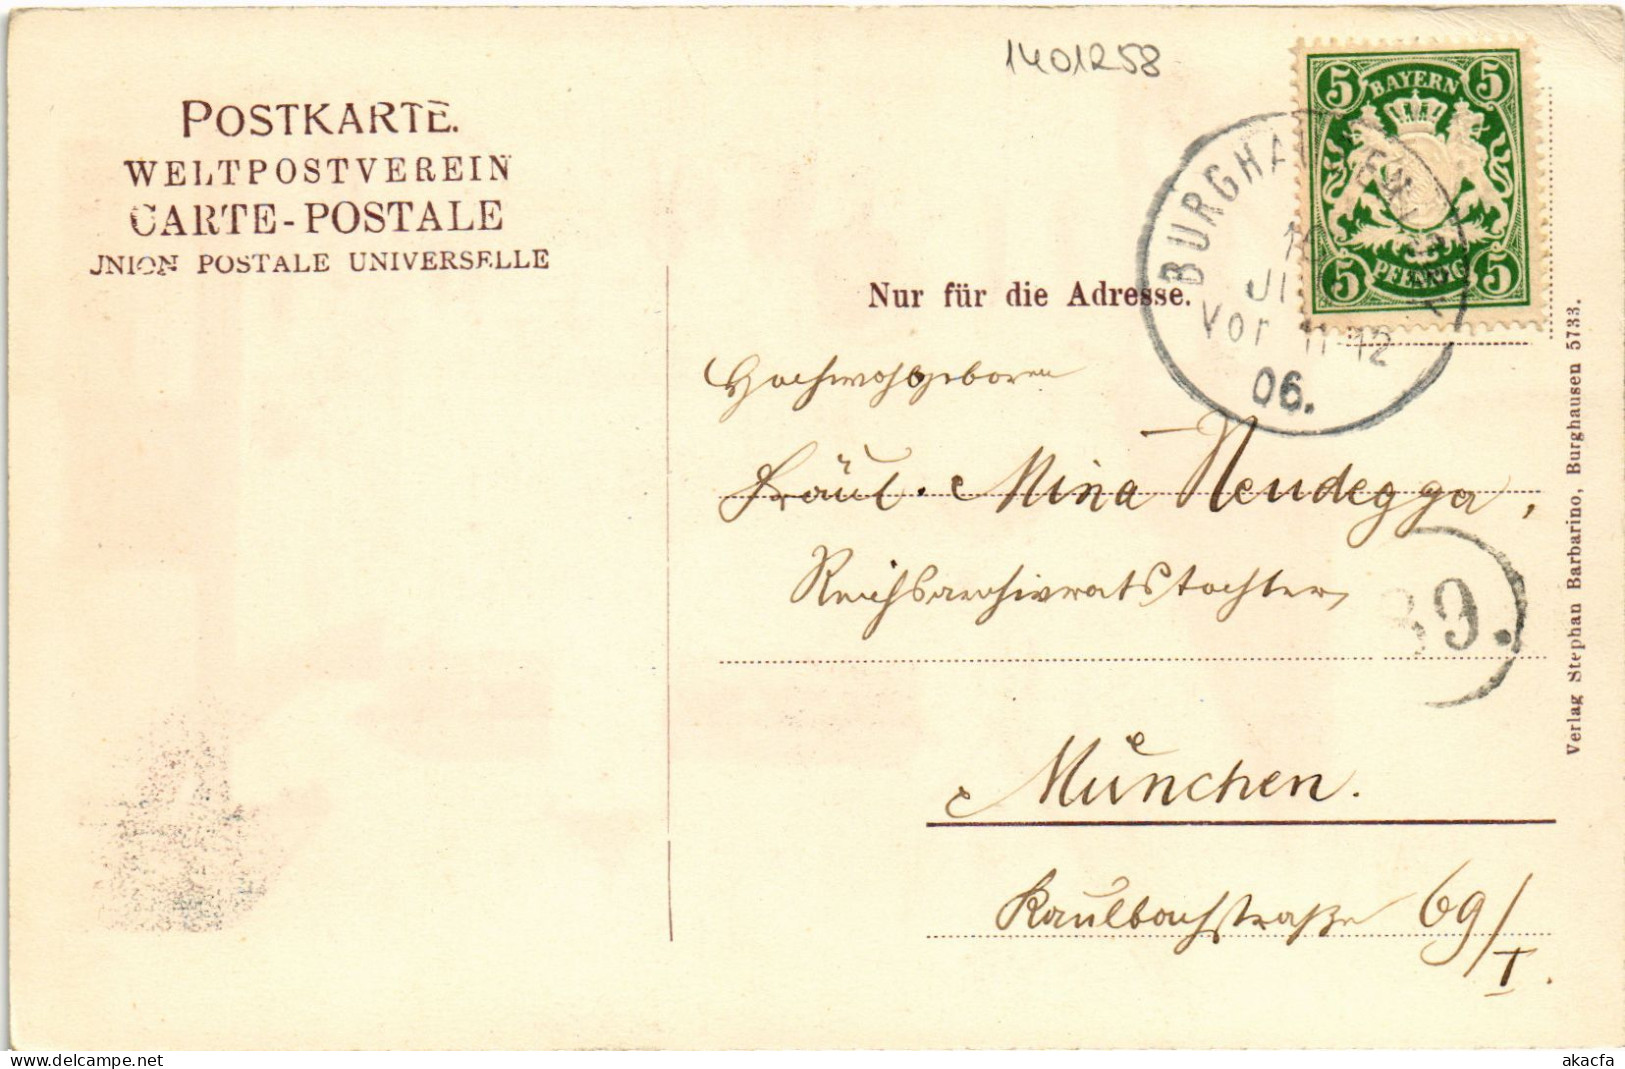 1401R58
POSTKARTE.
WELTPOSTVEREIN
CARTE-POSTALE
UNION POSTALE UNIVERSELLE
BAYERN
5 5
5 PFENNIG 5
BURGHA
Vor 11-12
06.
Nur für die Adresse.
Hochwohlgeboren
Fräul. Mina Neudegger,
Reichsarchivratstochter
39.
München.
Kaulbachstraße 69/I.
Verlag Stephan Barbarino, Burghausen 5733.
akacfa